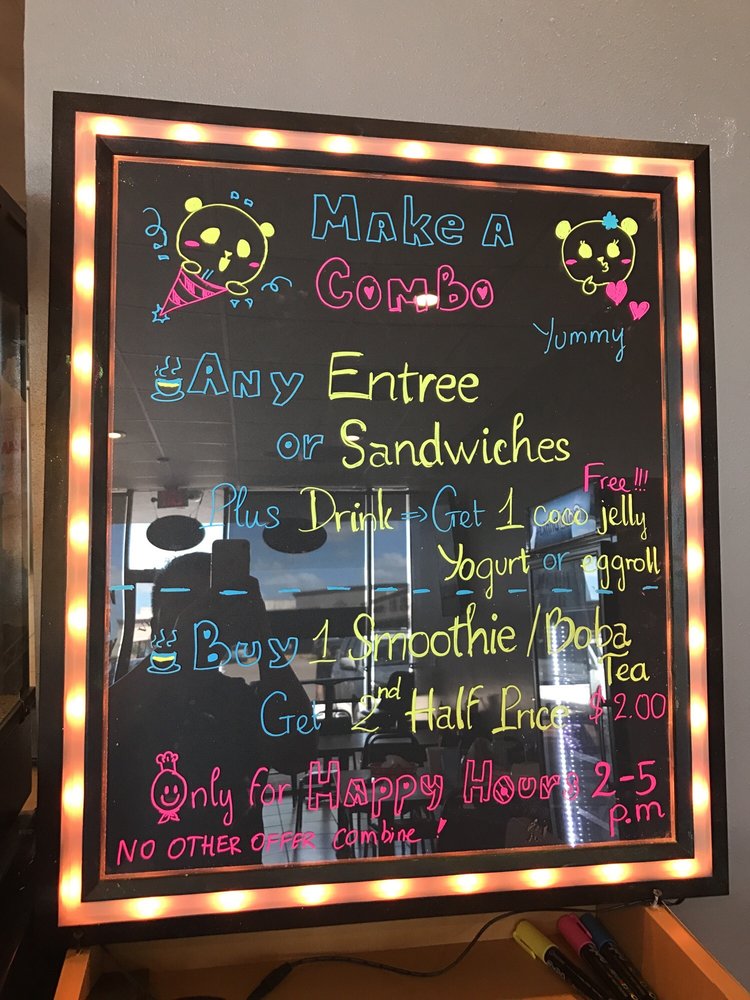 Make A
Combo
Yummy
Any Entree
or Sandwiches
Free!!!
Plus Drink ⇒ Get 1 coco jelly
Yogurt or eggroll
Buy 1 Smoothie / Boba
Tea
Get 2nd Half Price $2.00
Only for Happy Hours 2-5
p.m
NO OTHER OFFER combine !